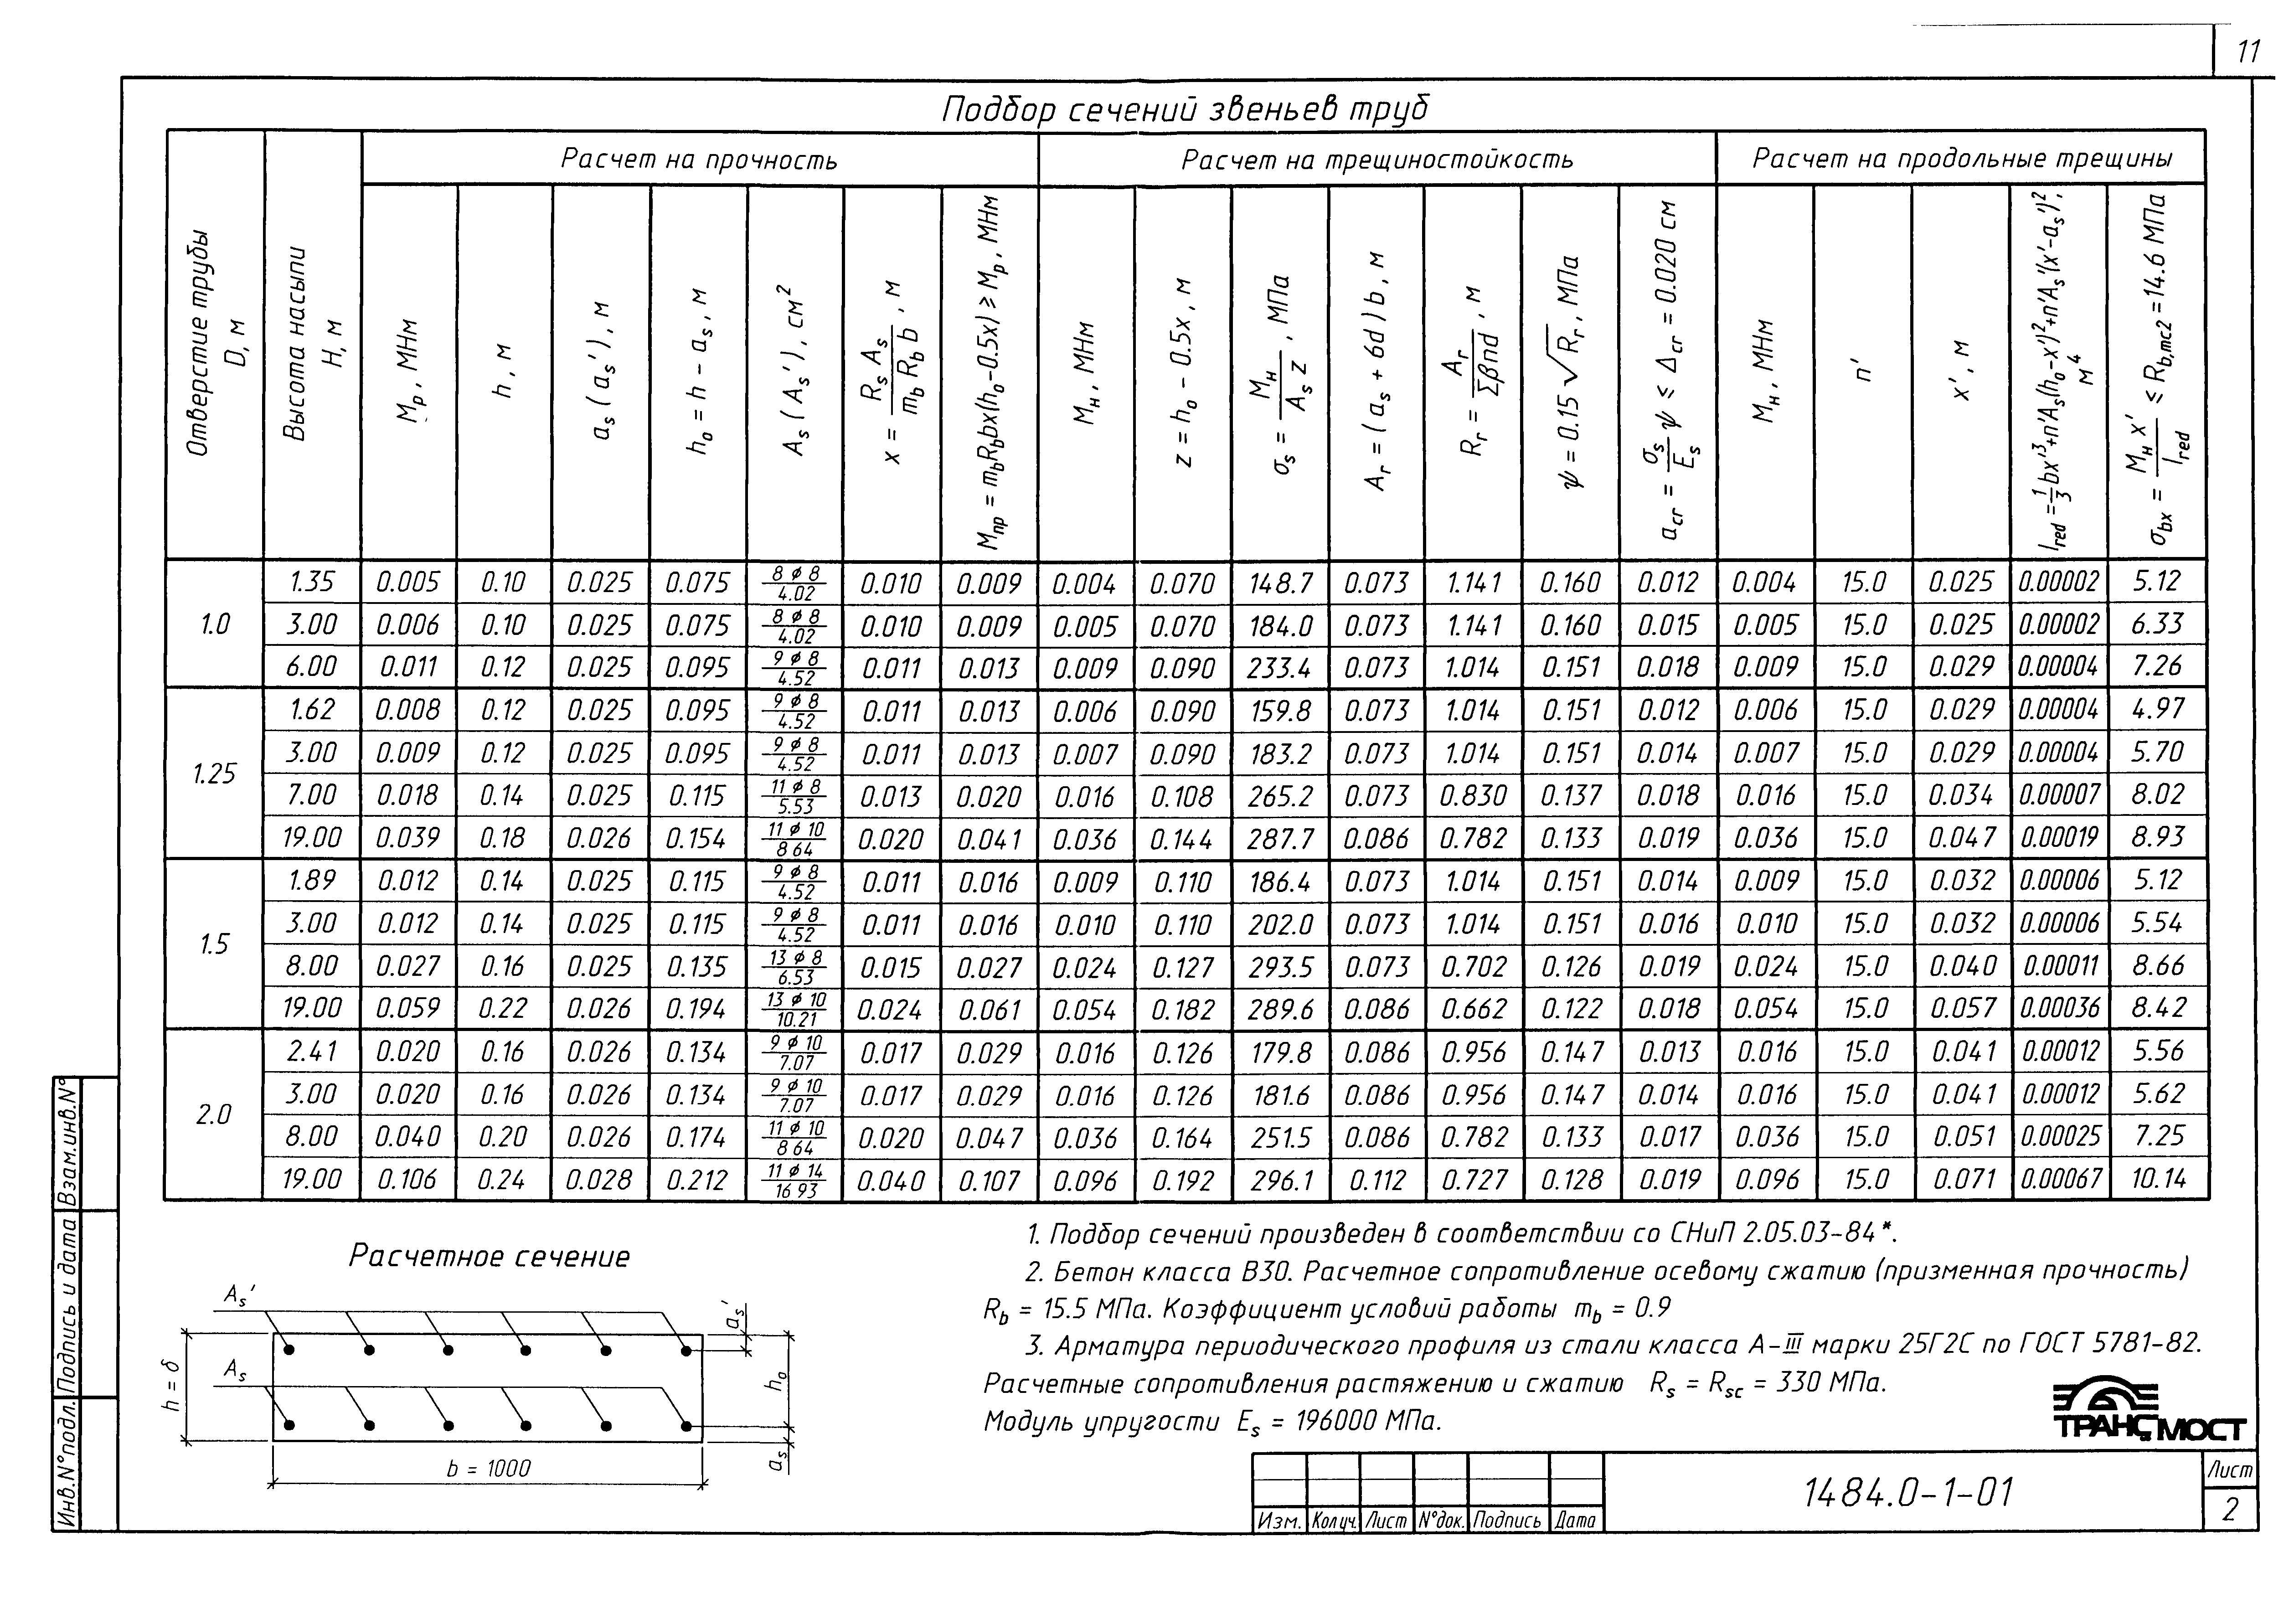 11
Подбор сечений звеньев труб
Расчет на прочность Расчет на трещиностойкость Расчет на продольные трещины
Отверстие трубы D, м
Высота насыпи H, м
Mр, МНм
h, м
as (as'), м
h₀ = h - as, м
As (As'), см²
x = Rs As / mb Rb b, м
Mпр = mbRbbx(h₀-0.5x) ≥ Mр, МНм
Mн, МНм
z = h₀ - 0.5x, м
σs = Mн / As z, МПа
Ar = (as + 6d) b, м
Rr = Ar / Σβnd, м
ψ = 0.15 √Rr, МПа
acr = σs / Es ψ ≤ Δcr = 0.020 см
Mн, МНм
n'
x', м
Ired = 1/3 bx'³+n'As(h₀-x')²+n'As'(x'-as')², м⁴
σbx = Mн x' / Ired ≤ Rb,mc2 = 14.6 МПа
1.0
1.35 0.005 0.10 0.025 0.075 8 ø 8 / 4.02 0.010 0.009 0.004 0.070 148.7 0.073 1.141 0.160 0.012 0.004 15.0 0.025 0.00002 5.12
3.00 0.006 0.10 0.025 0.075 8 ø 8 / 4.02 0.010 0.009 0.005 0.070 184.0 0.073 1.141 0.160 0.015 0.005 15.0 0.025 0.00002 6.33
6.00 0.011 0.12 0.025 0.095 9 ø 8 / 4.52 0.011 0.013 0.009 0.090 233.4 0.073 1.014 0.151 0.018 0.009 15.0 0.029 0.00004 7.26
1.25
1.62 0.008 0.12 0.025 0.095 9 ø 8 / 4.52 0.011 0.013 0.006 0.090 159.8 0.073 1.014 0.151 0.012 0.006 15.0 0.029 0.00004 4.97
3.00 0.009 0.12 0.025 0.095 9 ø 8 / 4.52 0.011 0.013 0.007 0.090 183.2 0.073 1.014 0.151 0.014 0.007 15.0 0.029 0.00004 5.70
7.00 0.018 0.14 0.025 0.115 11 ø 8 / 5.53 0.013 0.020 0.016 0.108 265.2 0.073 0.830 0.137 0.018 0.016 15.0 0.034 0.00007 8.02
19.00 0.039 0.18 0.026 0.154 11 ø 10 / 8 64 0.020 0.041 0.036 0.144 287.7 0.086 0.782 0.133 0.019 0.036 15.0 0.047 0.00019 8.93
1.5
1.89 0.012 0.14 0.025 0.115 9 ø 8 / 4.52 0.011 0.016 0.009 0.110 186.4 0.073 1.014 0.151 0.014 0.009 15.0 0.032 0.00006 5.12
3.00 0.012 0.14 0.025 0.115 9 ø 8 / 4.52 0.011 0.016 0.010 0.110 202.0 0.073 1.014 0.151 0.016 0.010 15.0 0.032 0.00006 5.54
8.00 0.027 0.16 0.025 0.135 13 ø 8 / 6.53 0.015 0.027 0.024 0.127 293.5 0.073 0.702 0.126 0.019 0.024 15.0 0.040 0.00011 8.66
19.00 0.059 0.22 0.026 0.194 13 ø 10 / 10.21 0.024 0.061 0.054 0.182 289.6 0.086 0.662 0.122 0.018 0.054 15.0 0.057 0.00036 8.42
2.0
2.41 0.020 0.16 0.026 0.134 9 ø 10 / 7.07 0.017 0.029 0.016 0.126 179.8 0.086 0.956 0.147 0.013 0.016 15.0 0.041 0.00012 5.56
3.00 0.020 0.16 0.026 0.134 9 ø 10 / 7.07 0.017 0.029 0.016 0.126 181.6 0.086 0.956 0.147 0.014 0.016 15.0 0.041 0.00012 5.62
8.00 0.040 0.20 0.026 0.174 11 ø 10 / 8 64 0.020 0.047 0.036 0.164 251.5 0.086 0.782 0.133 0.017 0.036 15.0 0.051 0.00025 7.25
19.00 0.106 0.24 0.028 0.212 11 ø 14 / 16 93 0.040 0.107 0.096 0.192 296.1 0.112 0.727 0.128 0.019 0.096 15.0 0.071 0.00067 10.14
Расчетное сечение
As'
As
h = δ
as'
h₀
as
b = 1000
1. Подбор сечений произведен в соответствии со СНиП 2.05.03-84*.
2. Бетон класса В30. Расчетное сопротивление осевому сжатию (призменная прочность)
Rb = 15.5 МПа. Коэффициент условий работы mb = 0.9
3. Арматура периодического профиля из стали класса А-III марки 25Г2С по ГОСТ 5781-82.
Расчетные сопротивления растяжению и сжатию Rs = Rsc = 330 МПа.
Модуль упругости Es = 196000 МПа.
ТРАНСМОСТ
Изм. Кол.уч. Лист N°док. Подпись Дата
1484.0-1-01
Лист
2
Взам.инв.N°
Подпись и дата
Инв.N°подл.